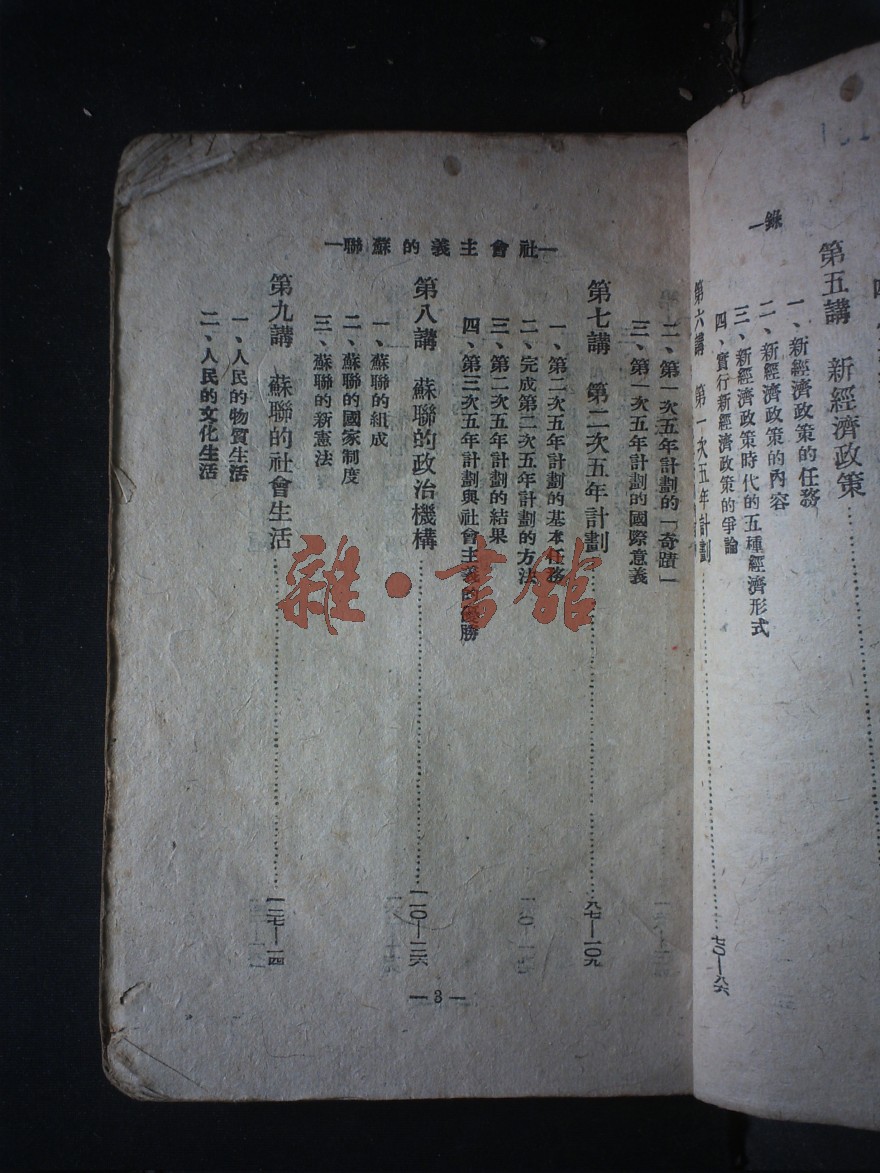 錄一
第五講　新經濟政策……
一、新經濟政策的任務
二、新經濟政策的內容
三、新經濟政策時代的五種經濟形式
四、實行新經濟政策的爭論
第六講　第一次五年計劃……七〇—八六
—社會主義的蘇聯—
二、第一次五年計劃的「奇蹟」
三、第一次五年計劃的國際意義
第七講　第二次五年計劃……九七—一〇九
一、第二次五年計劃的基本任務
二、完成第二次五年計劃的方法
三、第二次五年計劃的結果
四、第三次五年計劃與社會主義的優勝
第八講　蘇聯的政治機構……一一〇—一二六
一、蘇聯的組成
二、蘇聯的國家制度
三、蘇聯的新憲法
第九講　蘇聯的社會生活……一二七—一四
一、人民的物質生活
二、人民的文化生活
—3—
雜·書館